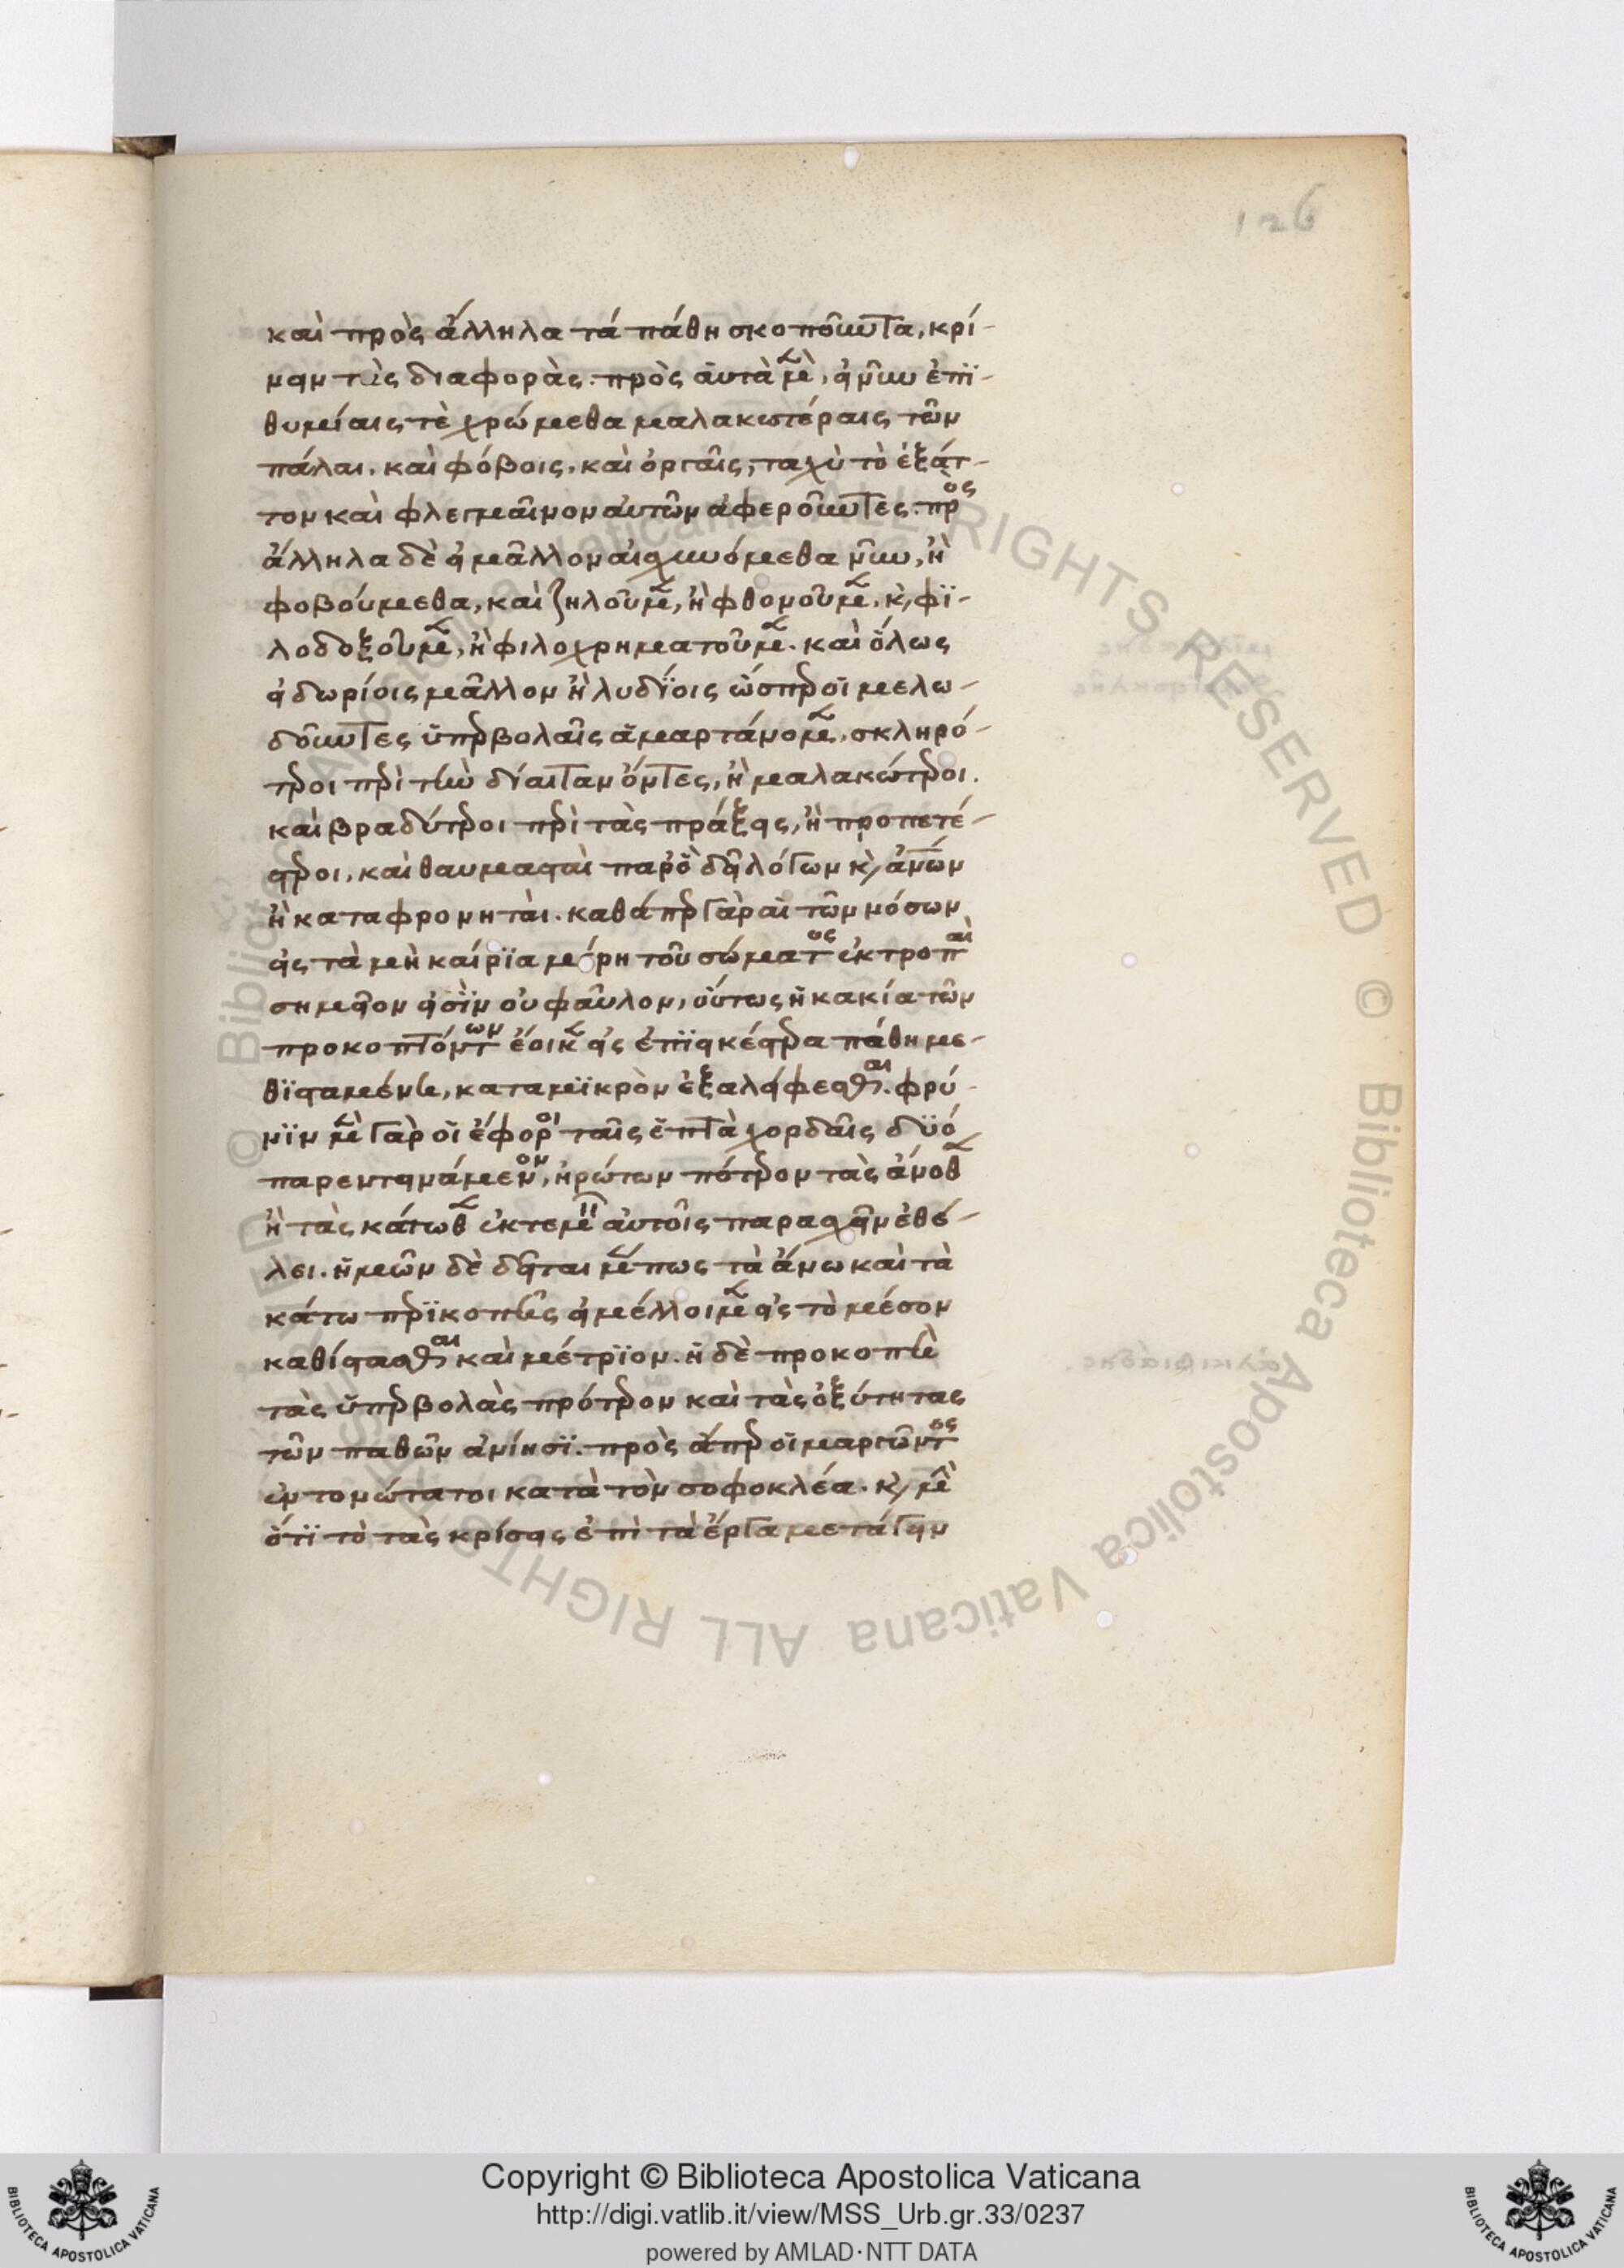 126
καὶ πρὸς ἄλληλα τά πάθη σκοποῦντα, κρί-
νειν τὰς διαφοράς. πρὸς αὑτὰ μὲν, εἰ νῦν ἐπϊ-
θυμίαις τὲ χρώμεθα μαλακωτέραις τῶν
πάλαι. καὶ φόβοις. καὶ ὀργαῖς, ταχὺ τὸ ἐξάπ-
τον καὶ φλεγμαῖνον αὐτῶν ἀφεροῦντες. πρὸς
ἄλληλα δὲ εἰ μᾶλλον αἰσχυνόμεθα νῦν, ἢ
φοβούμεθα, καὶ ζηλοῦμεν, ἢ φθονοῦμεν. κὶ φϊ-
λοδοξοῦμεν, ἢ φιλοχρηματοῦμεν. καὶ ὅλως
εἰ δωρίοις μᾶλλον ἢ λυδΐοις ὥσπερ οἱ μελω-
δοῦντες ὑπερβολαῖς ἁμαρτάνομεν, σκληρό-
τεροι περὶ τὴν δίαιταν ὄντες, ἢ μαλακώτεροι.
καὶ βραδύτεροι περὶ τὰς πράξεις, ἢ προπετέ-
στεροι, καὶ θαυμασταὶ παρ' ὃ δεῖ λόγων κὶ ἀνῶν
ἢ καταφρονηταὶ. καθάπερ γὰρ αἱ τῶν νόσων
εἰς τὰ μὴ καίρϊα μέρη τοῦ σώματος ἐκτροπαὶ
σημεῖον εἰσῒν οὐ φαῦλον, οὕτως ἡ κακία τῶν
προκοπτόντων ἔοικεν εἰς ἐπϊεικέστερα πάθη με-
θϊσταμένη, κατα μϊκρὸν ἐξαλείφεσθαι. φρύ-
νϊν μὲν γὰρ οἱ ἔφοροι ταῖς ἑπτὰ χορδαῖς δϋό
παρεντεινάμενον, ἠρώτων πότερον τὰς ἄνωθεν
ἢ τὰς κάτωθεν ἐκτεμεῖν αὐτοῖς παρασχεῖν ἐθέ-
λει. ἡμῶν δὲ δεῖται μέν πως τὰ ἄνω καὶ τὰ
κάτω περϊκοπῆς εἰ μέλλοιμεν εἰς τὸ μέσον
καθίστασθαι καὶ μέτρϊον. ἡ δὲ προκοπὴ
τὰς ὑπερβολὰς πρότερον καὶ τὰς ὀξύτητας
τῶν παθῶν ἀνίησϊ. πρὸς ἅπερ οἱ μαργῶντες
ἐντονώτατοι κατὰ τὸν σοφοκλέα. κὶ μὴν
ὅτϊ τὸ τὰς κρίσεις ἐπὶ τὰ ἔργα μετάγειν
Copyright © Biblioteca Apostolica Vaticana
http://digi.vatlib.it/view/MSS_Urb.gr.33/0237
powered by AMLAD·NTT DATA
BIBLIOTECA APOSTOLICA VATICANA
BIBLIOTECA APOSTOLICA VATICANA
© Biblioteca Apostolica Vaticana ALL RIGHTS RESERVED © Biblioteca Apostolica Vaticana ALL RIGHTS RESERVED